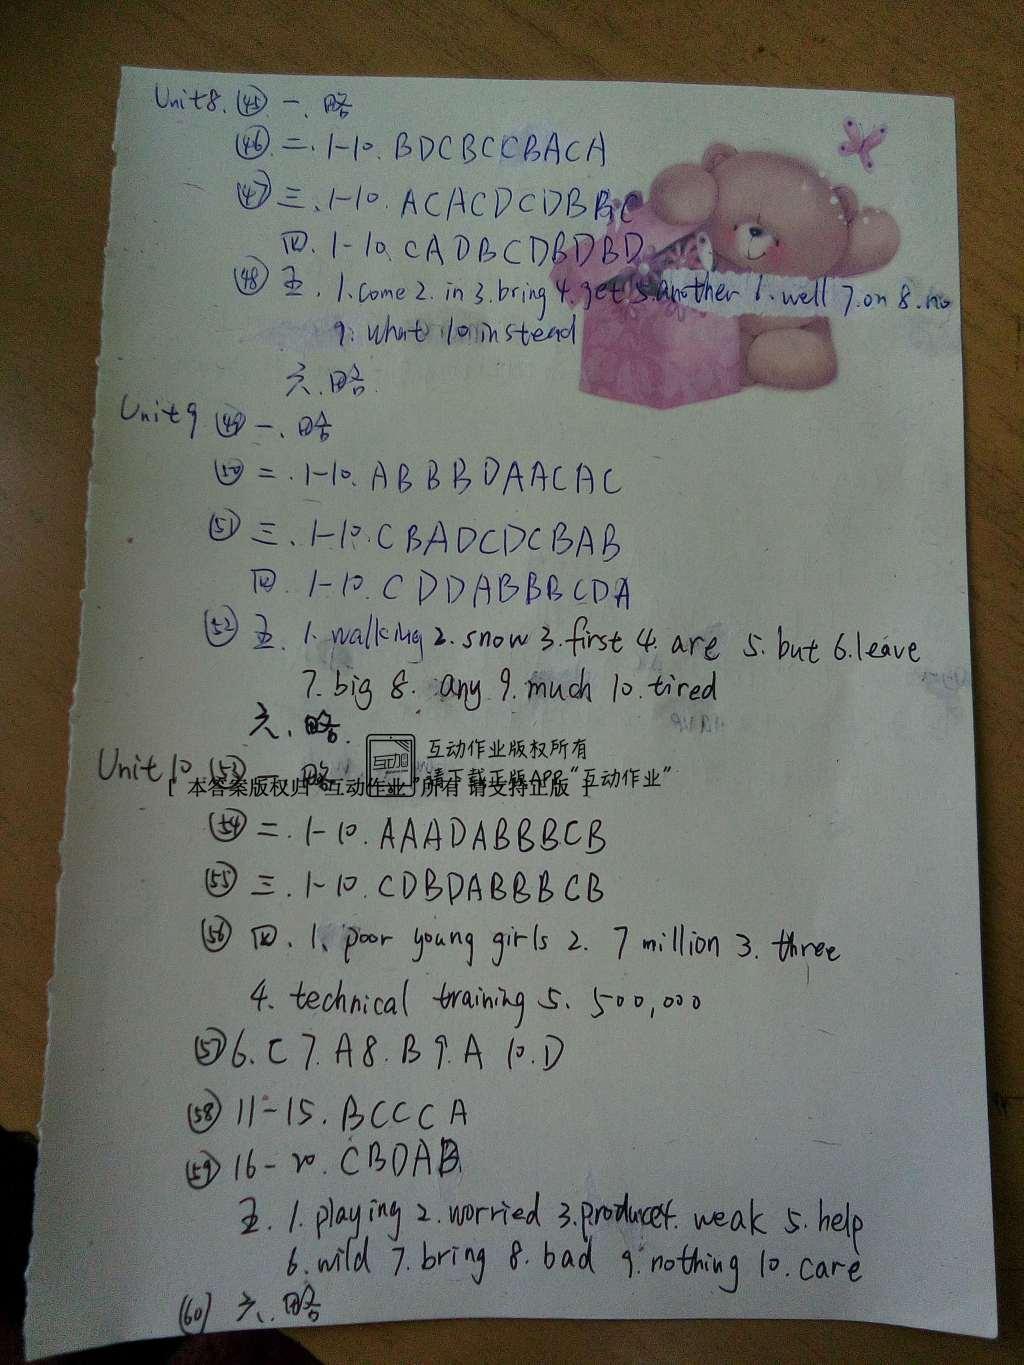 Unit8. (45) 一. 略
(46) 二. 1-10. BDCBCCBACA
(47) 三. 1-10. ACACDCDBBC
四. 1-10. CADBCDBDBD
(48) 五. 1. come 2. in 3. bring 4. get 5. another 6. well 7. on 8. no
9. what 10. instead
六. 略.
Unit9 (49) 一. 略
(50) 二. 1-10. ABBBDAACAC
(51) 三. 1-10. CBADCDCBAB
四. 1-10. CDDABBBCDA
(52) 五. 1. walking 2. snow 3. first 4. are 5. but 6. leave
7. big 8. any 9. much 10. tired
六. 略.
互动作业版权所有
Unit 10 (53) 一. 略
请下载正版APP“互动作业”
[ 本答案版权归“互动作业”所有 请支持正版 ]
(54) 二. 1-10. AAADABBBCB
(55) 三. 1-10. CDBDABBBCB
(56) 四. 1. poor young girls 2. 7 million 3. three
4. technical training 5. 500,000
(57) 6. C 7. A 8. B 9. A 10. D
(58) 11-15. BCCCA
(59) 16-20. CBDAB
五. 1. playing 2. worried 3. produce 4. weak 5. help
6. wild 7. bring 8. bad 9. nothing 10. care
(60) 六. 略